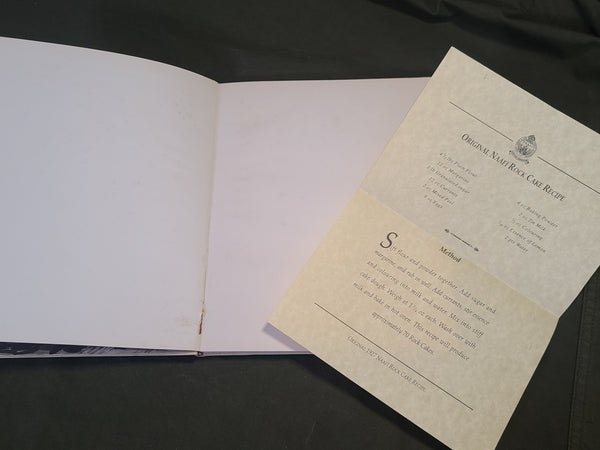 ORIGINAL NAAFI ROCK CAKE RECIPE
lbs Plain Flour
12 oz Margarine
Granulated sugar
12 oz Currants
2 oz Mixed Peel
2 oz Eggs
4 oz Baking Powder
2 oz Dn Milk
oz Colouring
oz Essence of Lemon
2 pts Water
Method
Sift flour and powder together. Add sugar and
margarine and rub in well. Add currants, stir essence
and colouring into milk and water. Mix into stiff
cake dough. Weigh at 2½ oz each. Wash over with
milk and bake in hot oven. This recipe will produce
approximately 70 Rock Cakes.
ORIGINAL 1927 NAAFI ROCK CAKE RECIPE